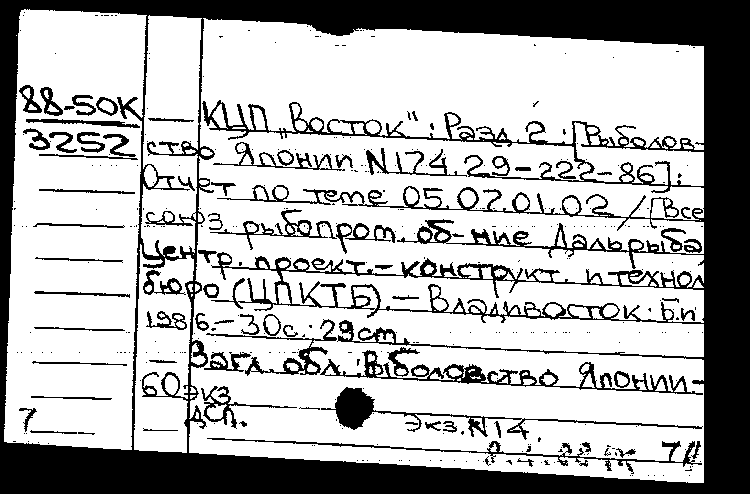 88-50К
3252
КЦП „Восток": Разд. 2 : [Рыболов-
ство Японии N174.29-222-86]:
Отчет по теме 05.02.01.02 / [Все
союз. рыбопром. об-ние Дальрыба
Центр. проект.-конструкт. и технол
бюро (ЦПКТБ). — Владивосток: Б.и.
1986.- 30с.; 29см.
Загл. обл.: Рыболовство Японии-
60 экз.
ДСП.
Экз.N14.
7